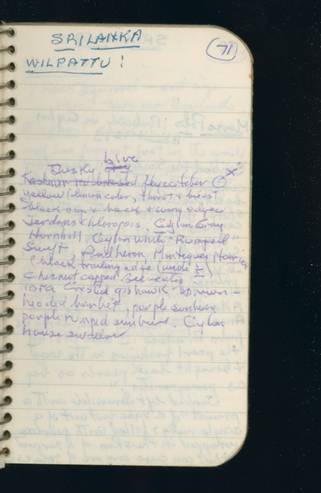 SRI LANKA
71
WILPATTU!
blue
Dusky
flycatcher
yellow throat & breast
black
Jerdons Chloropsis. Ceylon Gray
Hornbill. Ceylon White-Rumped
Swift Pond heron, Montagues Harrier,
(black trailing edge (under
Chesnut capped bee-eater
iora Crested goshawk brown-
hooded barbet, purple sunbird
purple rumped sunbird. Ceylon
house swallow